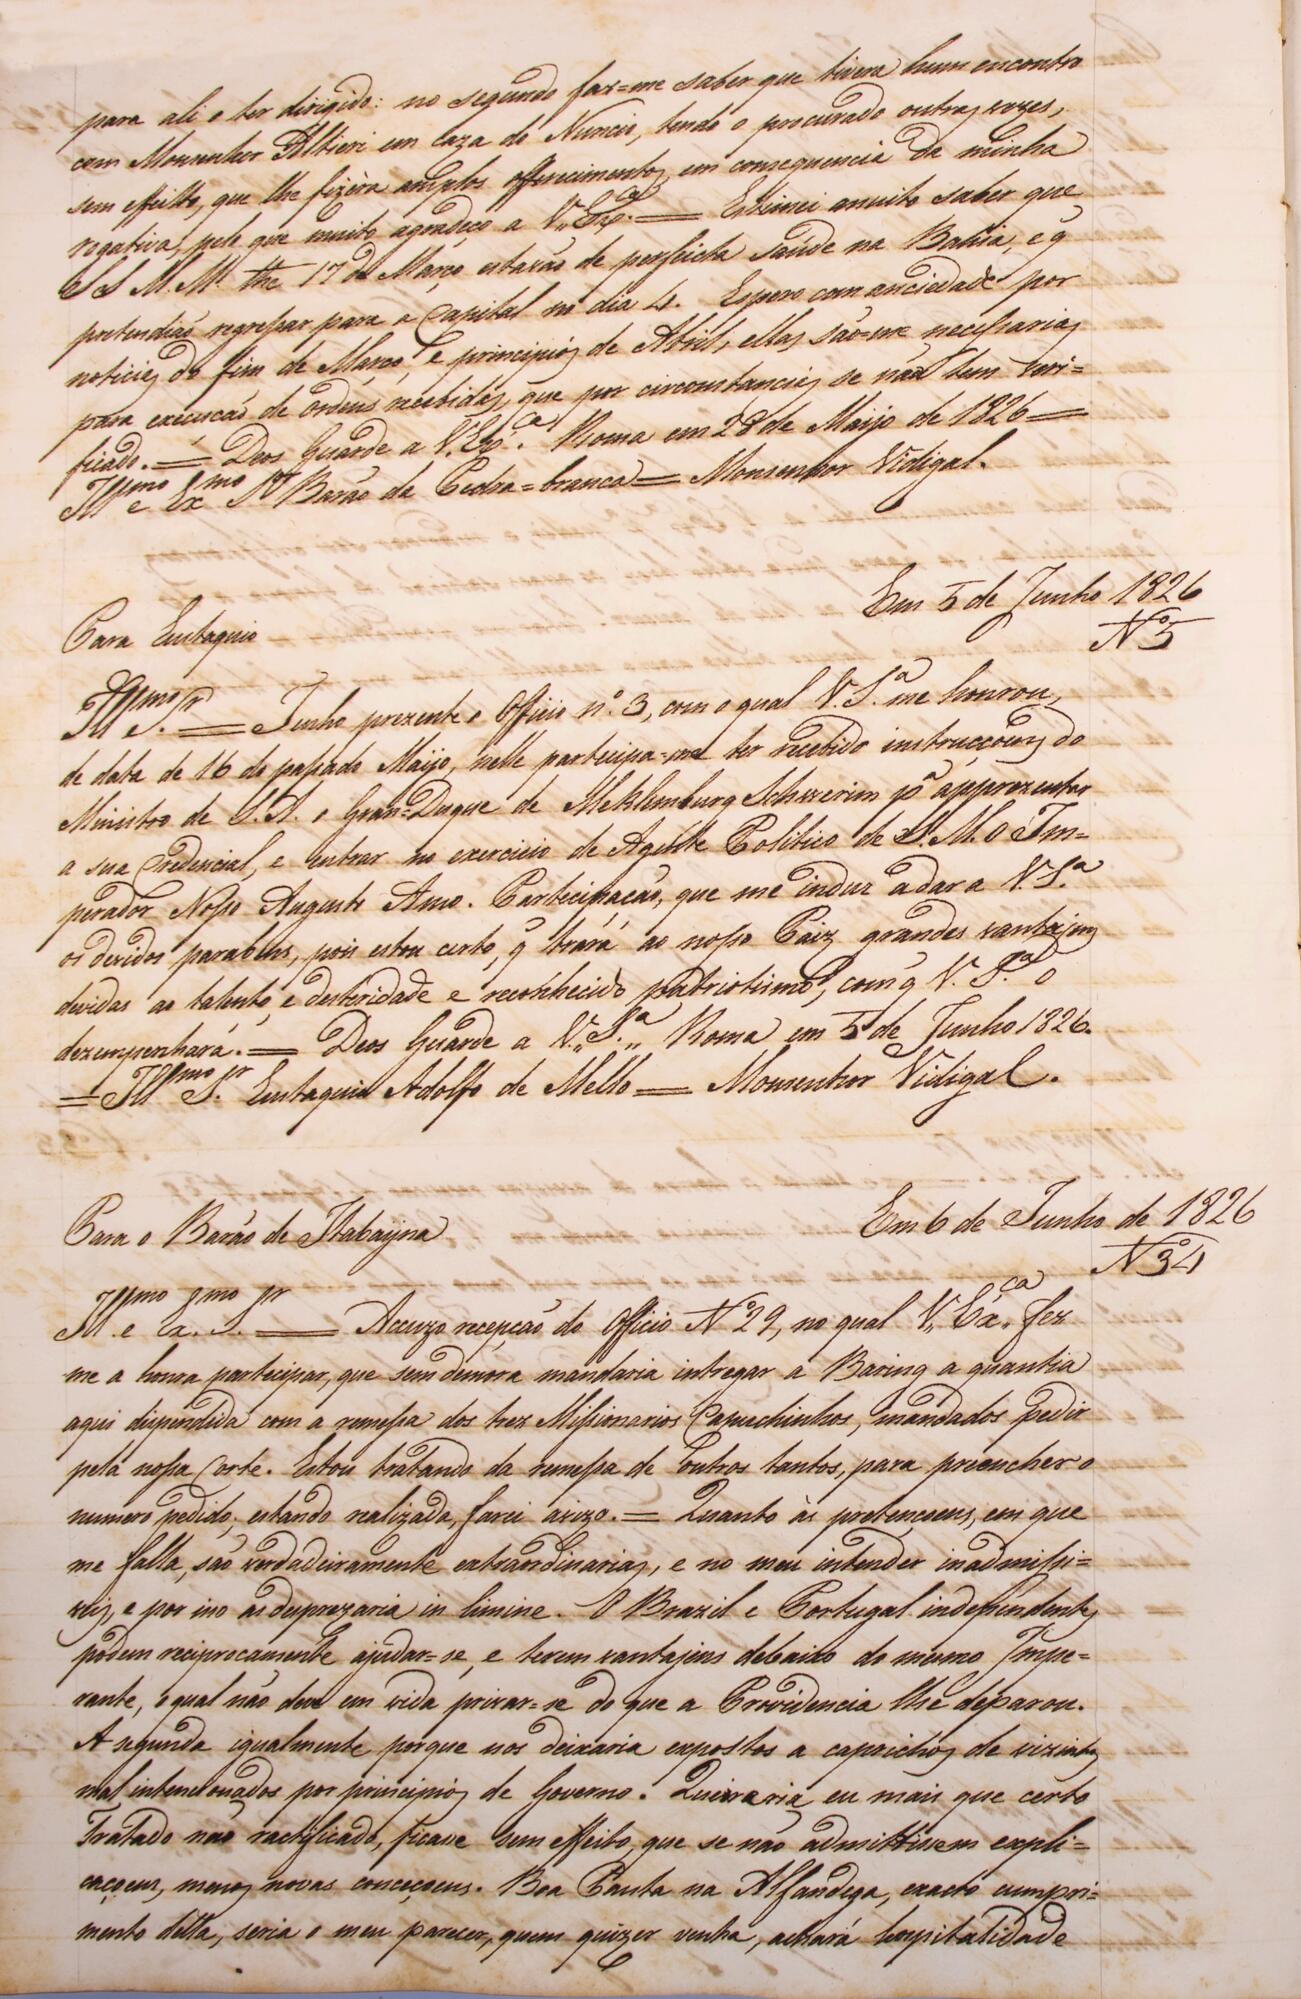 para ali o ter dirigido: no segundo faz=me saber que tivera hum encontro
com Monsenhor Altieri em caza do Nuncio, tendo o procurado outras vezes,
sem effeito, que lhe fizera amplos offerecimentos, em consequencia da minha
rogativa, pelo que muito agradeço a V. Ex.ª == Estimei muito saber que
SS M.M. the 17 de Março, estavão de perfeicta saúde na Bahia, e q̃
pretendião regressar para a Capital no dia 4. Espero com anciedade por
noticias do fim de Março, e principios de Abril, ellas são=me necessarias
para execucão de ordens recebidas, que por circomstancias se não tem veri=
ficado. == Deos Guarde a V. Ex.ª Roma em 28 de Maijo de 1826 ==
Ill.mo e Ex.mo Sr. Barão da Pedra=branca == Monsenhor Vidigal.
Em 5 de Junho 1826
Para Eustaquio
Nº 5
Ill.mo Sr. == Tenho prezente o Officio nº 3, com o qual V. S.ª me honrou,
de data de 16 do passado Maijo, nelle participa=me ter recebido instrucçoens do
Ministro de S. A. o Gran=Duque de Meklemburg Schwerim pª apprezentar
a sua Credencial, e entrar no exercicio de Agente Politico de S. M. O Im=
perador Nosso Augusto Amo. Partecipacão, que me induz a dar a V. S.ª
os devidos parabens, pois estou certo, q̃ trará ao nosso Paiz grandes vantajens
devidas ao talento, e desteridade e reconhecido patriotismo, com q̃ V. S.ª o
dezempenhará. == Deos Guarde a V. S.ª Roma em 5 de Junho 1826.
== Ill.mo Sr. Eustaquio Adolfo de Mello == Monsenhor Vidigal.
Em 6 de Junho de 1826
Para o Barão de Itabayna
Nº 34
Ill.mo e Ex.mo Sr. == Accuzo recepção do Officio Nº 29, no qual V. Ex.ca fez
me a honra participar, que sem demora mandaria intregar a Baring a quantia
aqui dispendida com a remessa dos trez Missionarios Capuchinhos, mandados pedir
pela nossa Corte. Estou tratando da remessa de outros tantos, para preencher o
numero pedido, estando realizada, farei avizo. == Quanto às pretençoens, em que
me falla, são verdadeiramente extraordinarias, e no meu intender inadmissi=
veis, e por isso as desprezaria in limine. O Brazil e Portugal independentes
podem reciprocamente ajudar=se, e terem vantajens debaixo do mesmo Impe=
rante, o qual não deve em vida privar=se do que a Providencia lhe deparou.
A segunda igualmente porque nos deixaria expostos a caprichos de vizinhos
mal intencionados por principios de Governo. Quizera eu mais que certo
Tratado nao ractificado, ficase sem effeito, que se não admittissem expli=
caçoens, menos novas conceçoens. Boa Pauta na Alfandega, exacto cumpri=
mento della, seria o meu parecer, quem quizer venha, achará hospitalidade